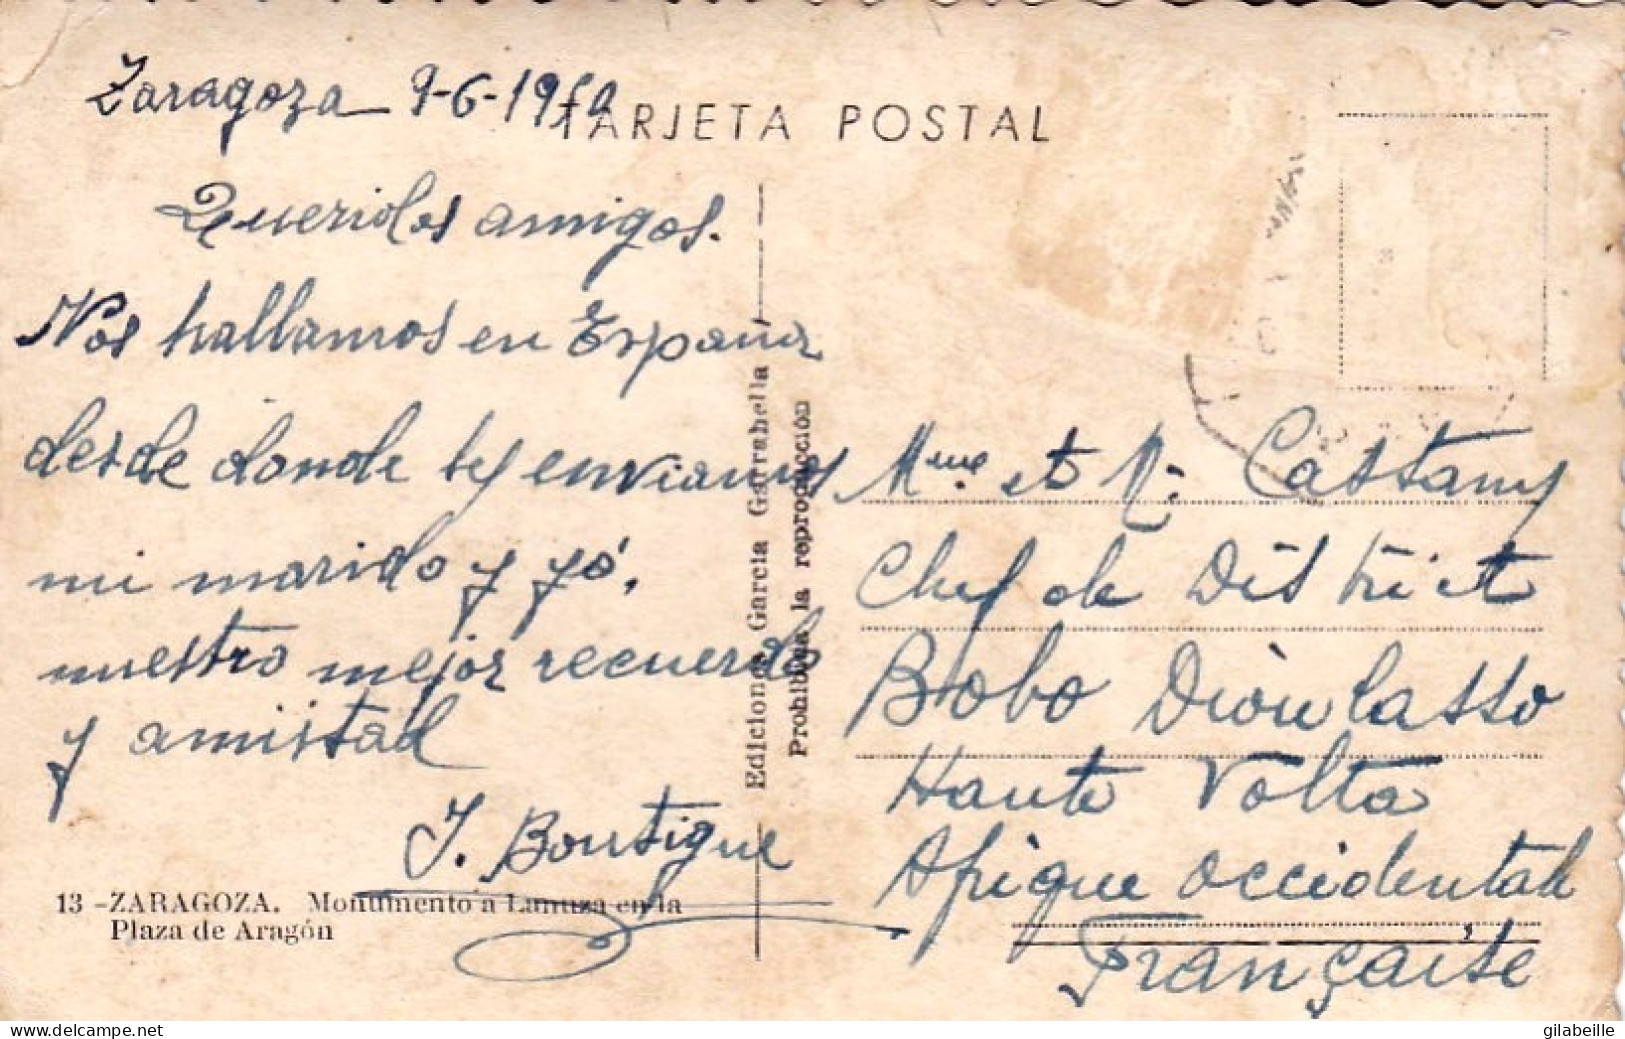 Zaragoza 9-6-1950
TARJETA POSTAL
Queridos amigos.
Nos hallamos en España
desde donde les enviamos
mi marido y yó,
nuestro mejor recuerdo
y amistad
J. Boutique
13 -ZARAGOZA. Monumento a Lanuza en la
Plaza de Aragón
Ediciones García Garrabella
Prohibida la reproducción
Mme et M. Castany
Chef de District
Bobo Dioulasso
Haute Volta
Afrique Occidentale
Française
gilabeille